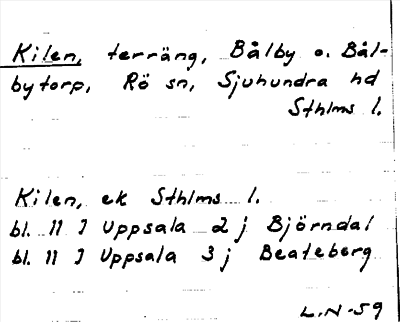 Kilen, terräng, Bålby o. Bål-
bytorp, Rö sn, Sjuhundra hd
Sthlms l.
Kilen, ek Sthlms l.
bl. 11 I Uppsala 2 j Björndal
bl. 11 I Uppsala 3 j Beateberg
L.N-59